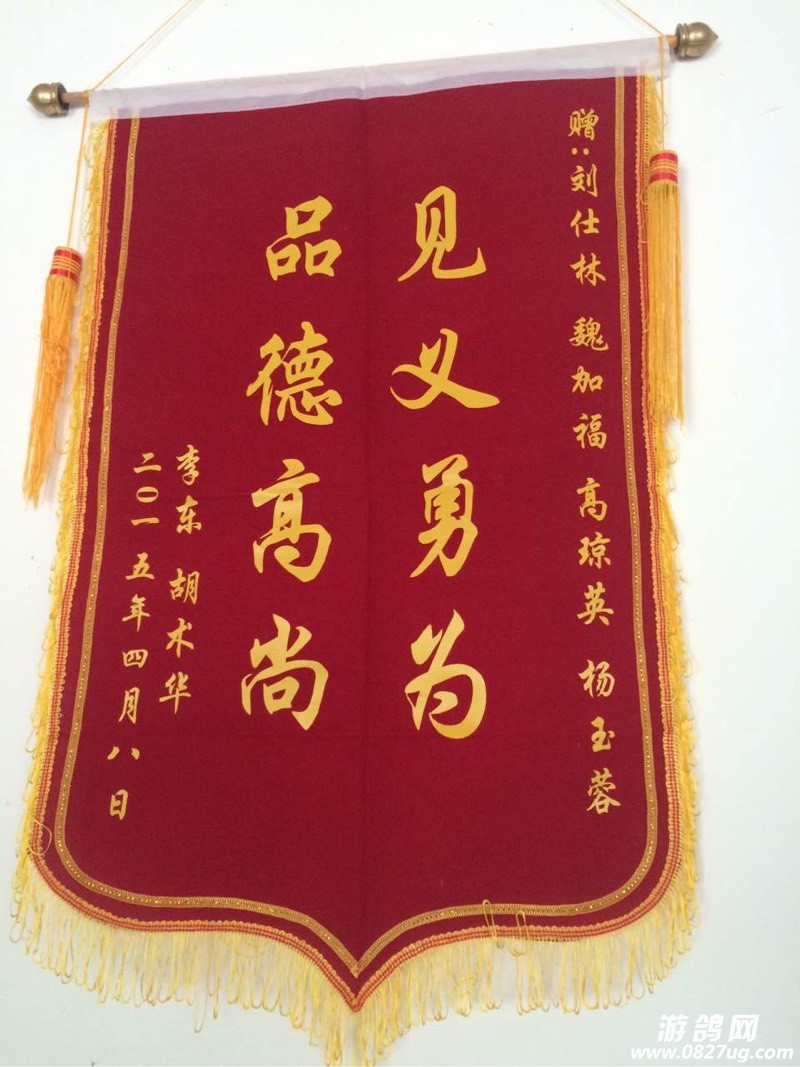 赠:刘仕林 魏加福 高琼英 杨玉蓉
见义勇为
品德高尚
李东 胡术华
二〇一五年四月八日
游鸽网
www.0827ug.com